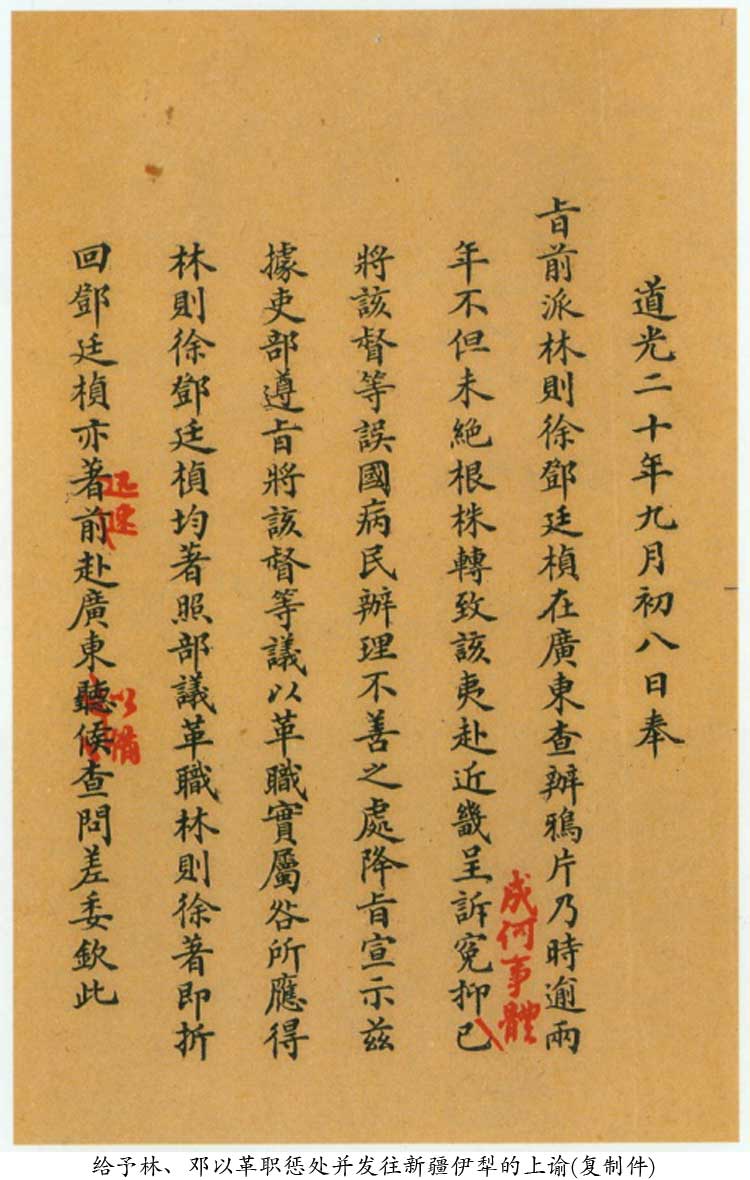 道光二十年九月初八日奉
旨前派林則徐鄧廷楨在廣東查辦鴉片乃時逾兩
年不但未絕根株轉致該夷赴近畿呈訴冤抑已
成何事體
將該督等誤國病民辦理不善之處降旨宣示茲
據吏部遵旨將該督等議以革職實屬咎所應得
林則徐鄧廷楨均著照部議革職林則徐著即折
回鄧廷楨亦著前赴廣東聽候查問差委欽此
迅速
以備
给予林、邓以革职惩处并发往新疆伊犁的上谕(复制件)